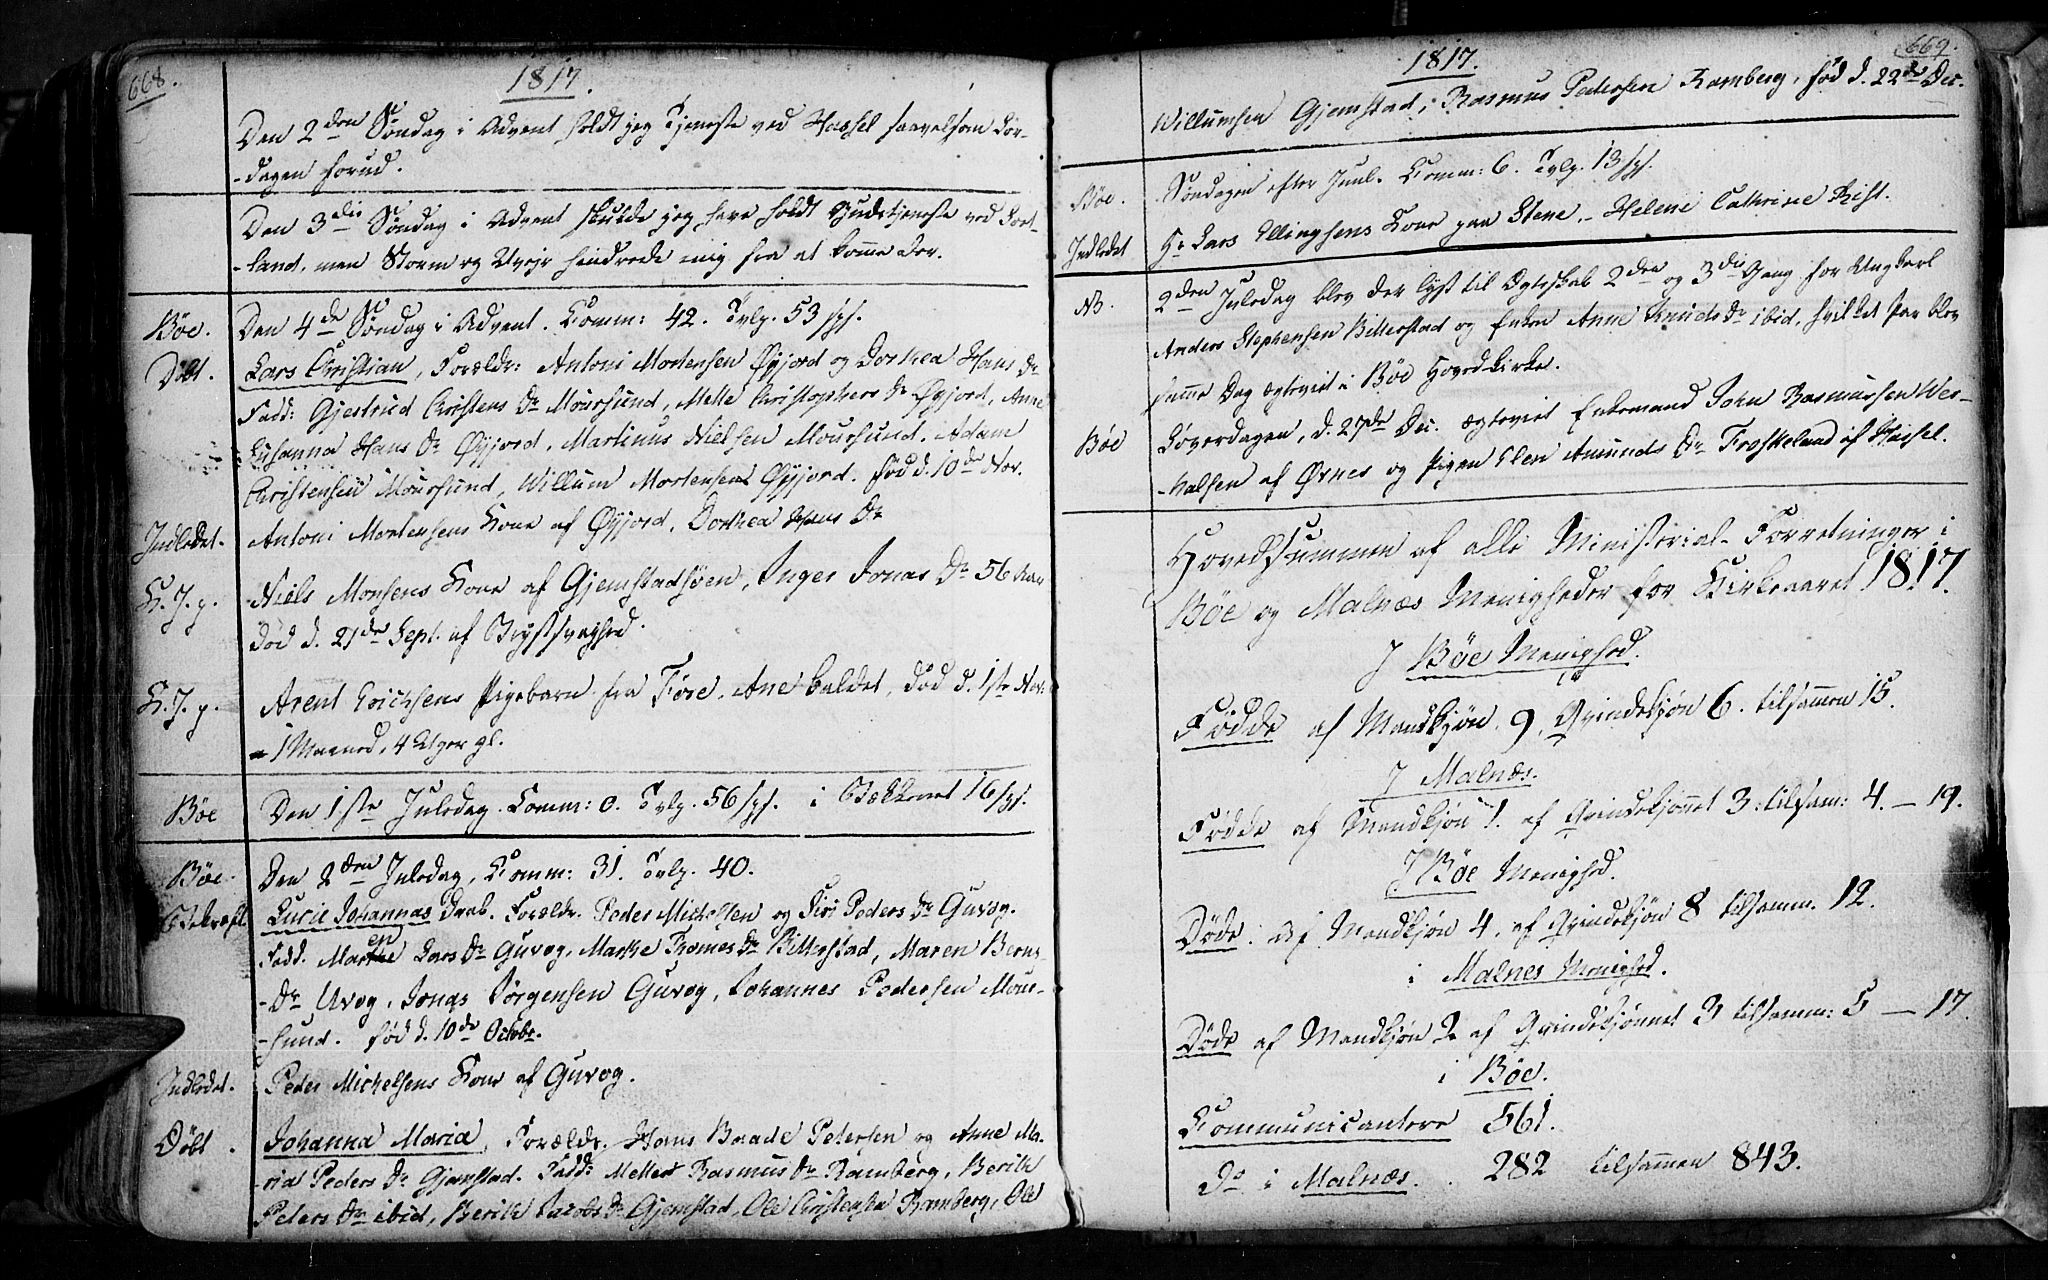 668.
1817.
Den 2den Søndag i Advent holdt jeg Tjeneste ved Hassel saavelsom Lør-
-dagen forud.
Den 3die Søndag i Advent skulde jeg have holdt Gudstjeneste ved Sort-
-land, men Storm og Uveir hindrede mig fra at komme der.
Bøe. Den 4de Søndag i Advent. Comm: 42. Tvlg. 53 sh.
Døbt. Lars Christian, Forældr: Antoni Mortensen Øyjord og Dorthea Hans Dr
Fadd: Gjertrud Christens Dr Moursund, Mette Christophers Dr Øyjord, Anne
Susanna Hans Dr Øyjord, Martinus Nielsen Moursund, Adam
Christensen Moursund, Willum Mortensen Øyjord. Fød d. 10de Nov.
Indledet. Antoni Mortensens Kone af Øyjord, Dorthea Hans Dr
K. J. p. Niels Monsens Kone af Gjemstadsøen, Inger Jonas Dr 56 Aar
Død d. 21de Sept. af Brystsvaghed.
K. J. p. Arent Erichsens Pigebarn fra Føre, Ane kaldet, død d. 1ste Nov:
1 Maaned, 4 Uger gl.
Bøe Den 1ste Juledag. Comm: 0. Tvlg. 56 sh. i Bekkenet 16 sh.
Bøe. Den 2den Juledag, Comm: 31. Tvlg. 40.
Bekræft. Lucie Johannas Daab. Forældr. Peder Michelsen og Siri Peders Dr Guvog.
Fadd. Maren Lars Dr Guvog, Marthe Thomes Dr Bitterstad, Maren Bernt-
-Dr Uvog, Jonas Jørgensen Guvog, Johannes Pedersen Mour-
-sund. Fød d. 10de Octobr.
Indledet. Peder Michelsens Kone af Guvog.
Døbt. Johanna Maria, Forældr. Hans Baade Petersen og Anne Ma-
-ria Peders Dr Gjemstad. Fadd: Mette Rasmus Dr Ramberg, Berith
Peters Dr ibid, Berith Jacobs Dr Gjemstad, Ole Christensen Ramberg, Ole
669.
1817.
Willumsen Gjemstad, Rasmus Pedersen Ramberg, fød d. 22de Dec.
Bøe. Søndagen efter Juul. Comm: 6. Tvlg. 13 sh.
Indledet Hr Lars Ellingsens Kone paa Stene, Helene Cathrine Rist.
NB. 2den Juledag blev der lyst til Ægteskab 2den og 3die Gang for Ungkarl
Anders Stephensen Bitterstad og Enken Anne Knuds Dr ibid, hvilket Par blev
samme Dag ægteviet i Bøe Hovedkirke.
Bøe Løverdagen, d. 27de Dec. ægteviet Enkemand John Rasmussen Wes-
-halsen af Øvnes og Pigen Elen Amunds Dr Froskeland af Hassel.
Hovedsummen af alle Ministerial-Forretninger i
Bøe og Malnæs Menigheder for Kirkeaaret 1817
I Bøe Menighed.
Fødde af Mandkjøn 9, Qvindekjøn 6. tilsammen 15.
I Malnæs.
Fødde af Mandkjøn 1. af Qvindekjønnet 3: tilsam: 4. — 19.
I Bøe Menighed.
Døde: af Mandkjøn 4. af Qvindekjøn 8 tilsamm. 12.
i Malnes Menighed.
Døde af Mandkjøn 2 af Qvindekjønnet 3 tilsamm: 5 — 17.
i Bøe.
Communicantere 561.
Do i Malnæs. 282 tilsammen 843.